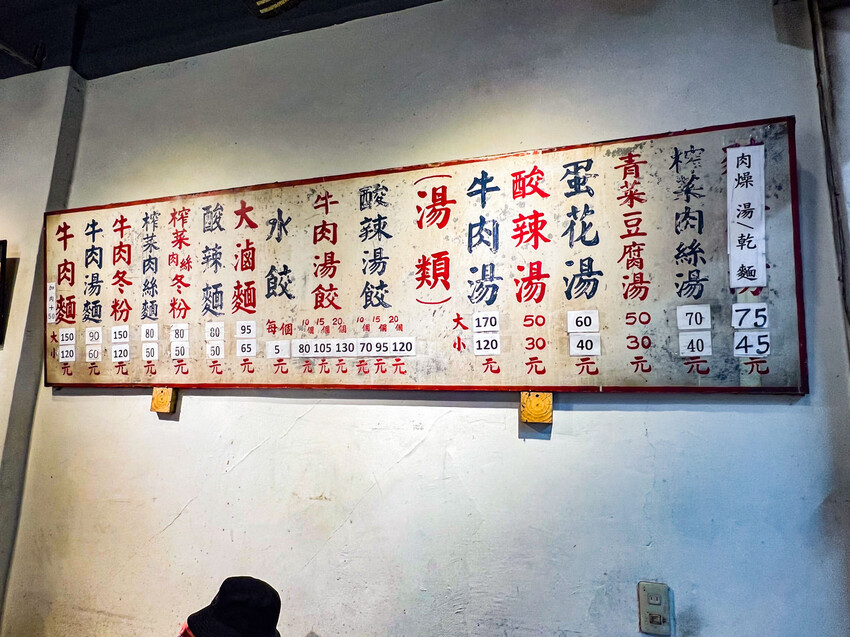 加肉+50
牛肉麵 大150 小120元
牛肉湯麵 90 60元
牛肉冬粉 150 120元
榨菜肉絲麵 80 50元
榨菜肉絲冬粉 80 50元
酸辣麵 80 50元
大滷麵 95 65元
水餃 每個 5元
牛肉湯餃 10個 15個 20個 80 105 130 元元元
酸辣湯餃 10個 15個 20個 70 95 120 元元元
(湯類) 大 小
牛肉湯 170 120元
酸辣湯 50 30元
蛋花湯 60 40元
青菜豆腐湯 50 30元
榨菜肉絲湯 70 40元
肉燥 湯/乾 麵 75 45元